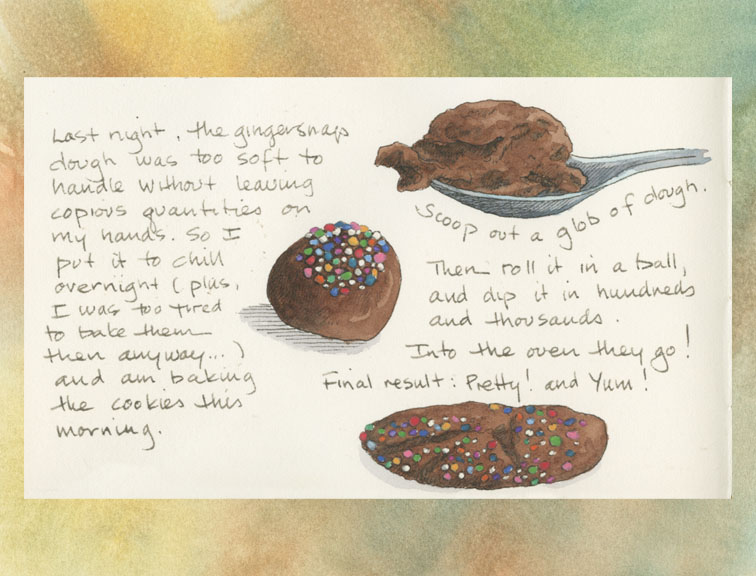 Last night, the gingersnap
dough was too soft to
handle without leaving
copious quantities on
my hands. So I
put it to chill
overnight (plus,
I was too tired
to bake them
then anyway...)
and am baking
the cookies this
morning.
Scoop out a glob of dough.
Then roll it in a ball,
and dip it in hundreds
and thousands.
Into the oven they go!
Final result: Pretty! and Yum!